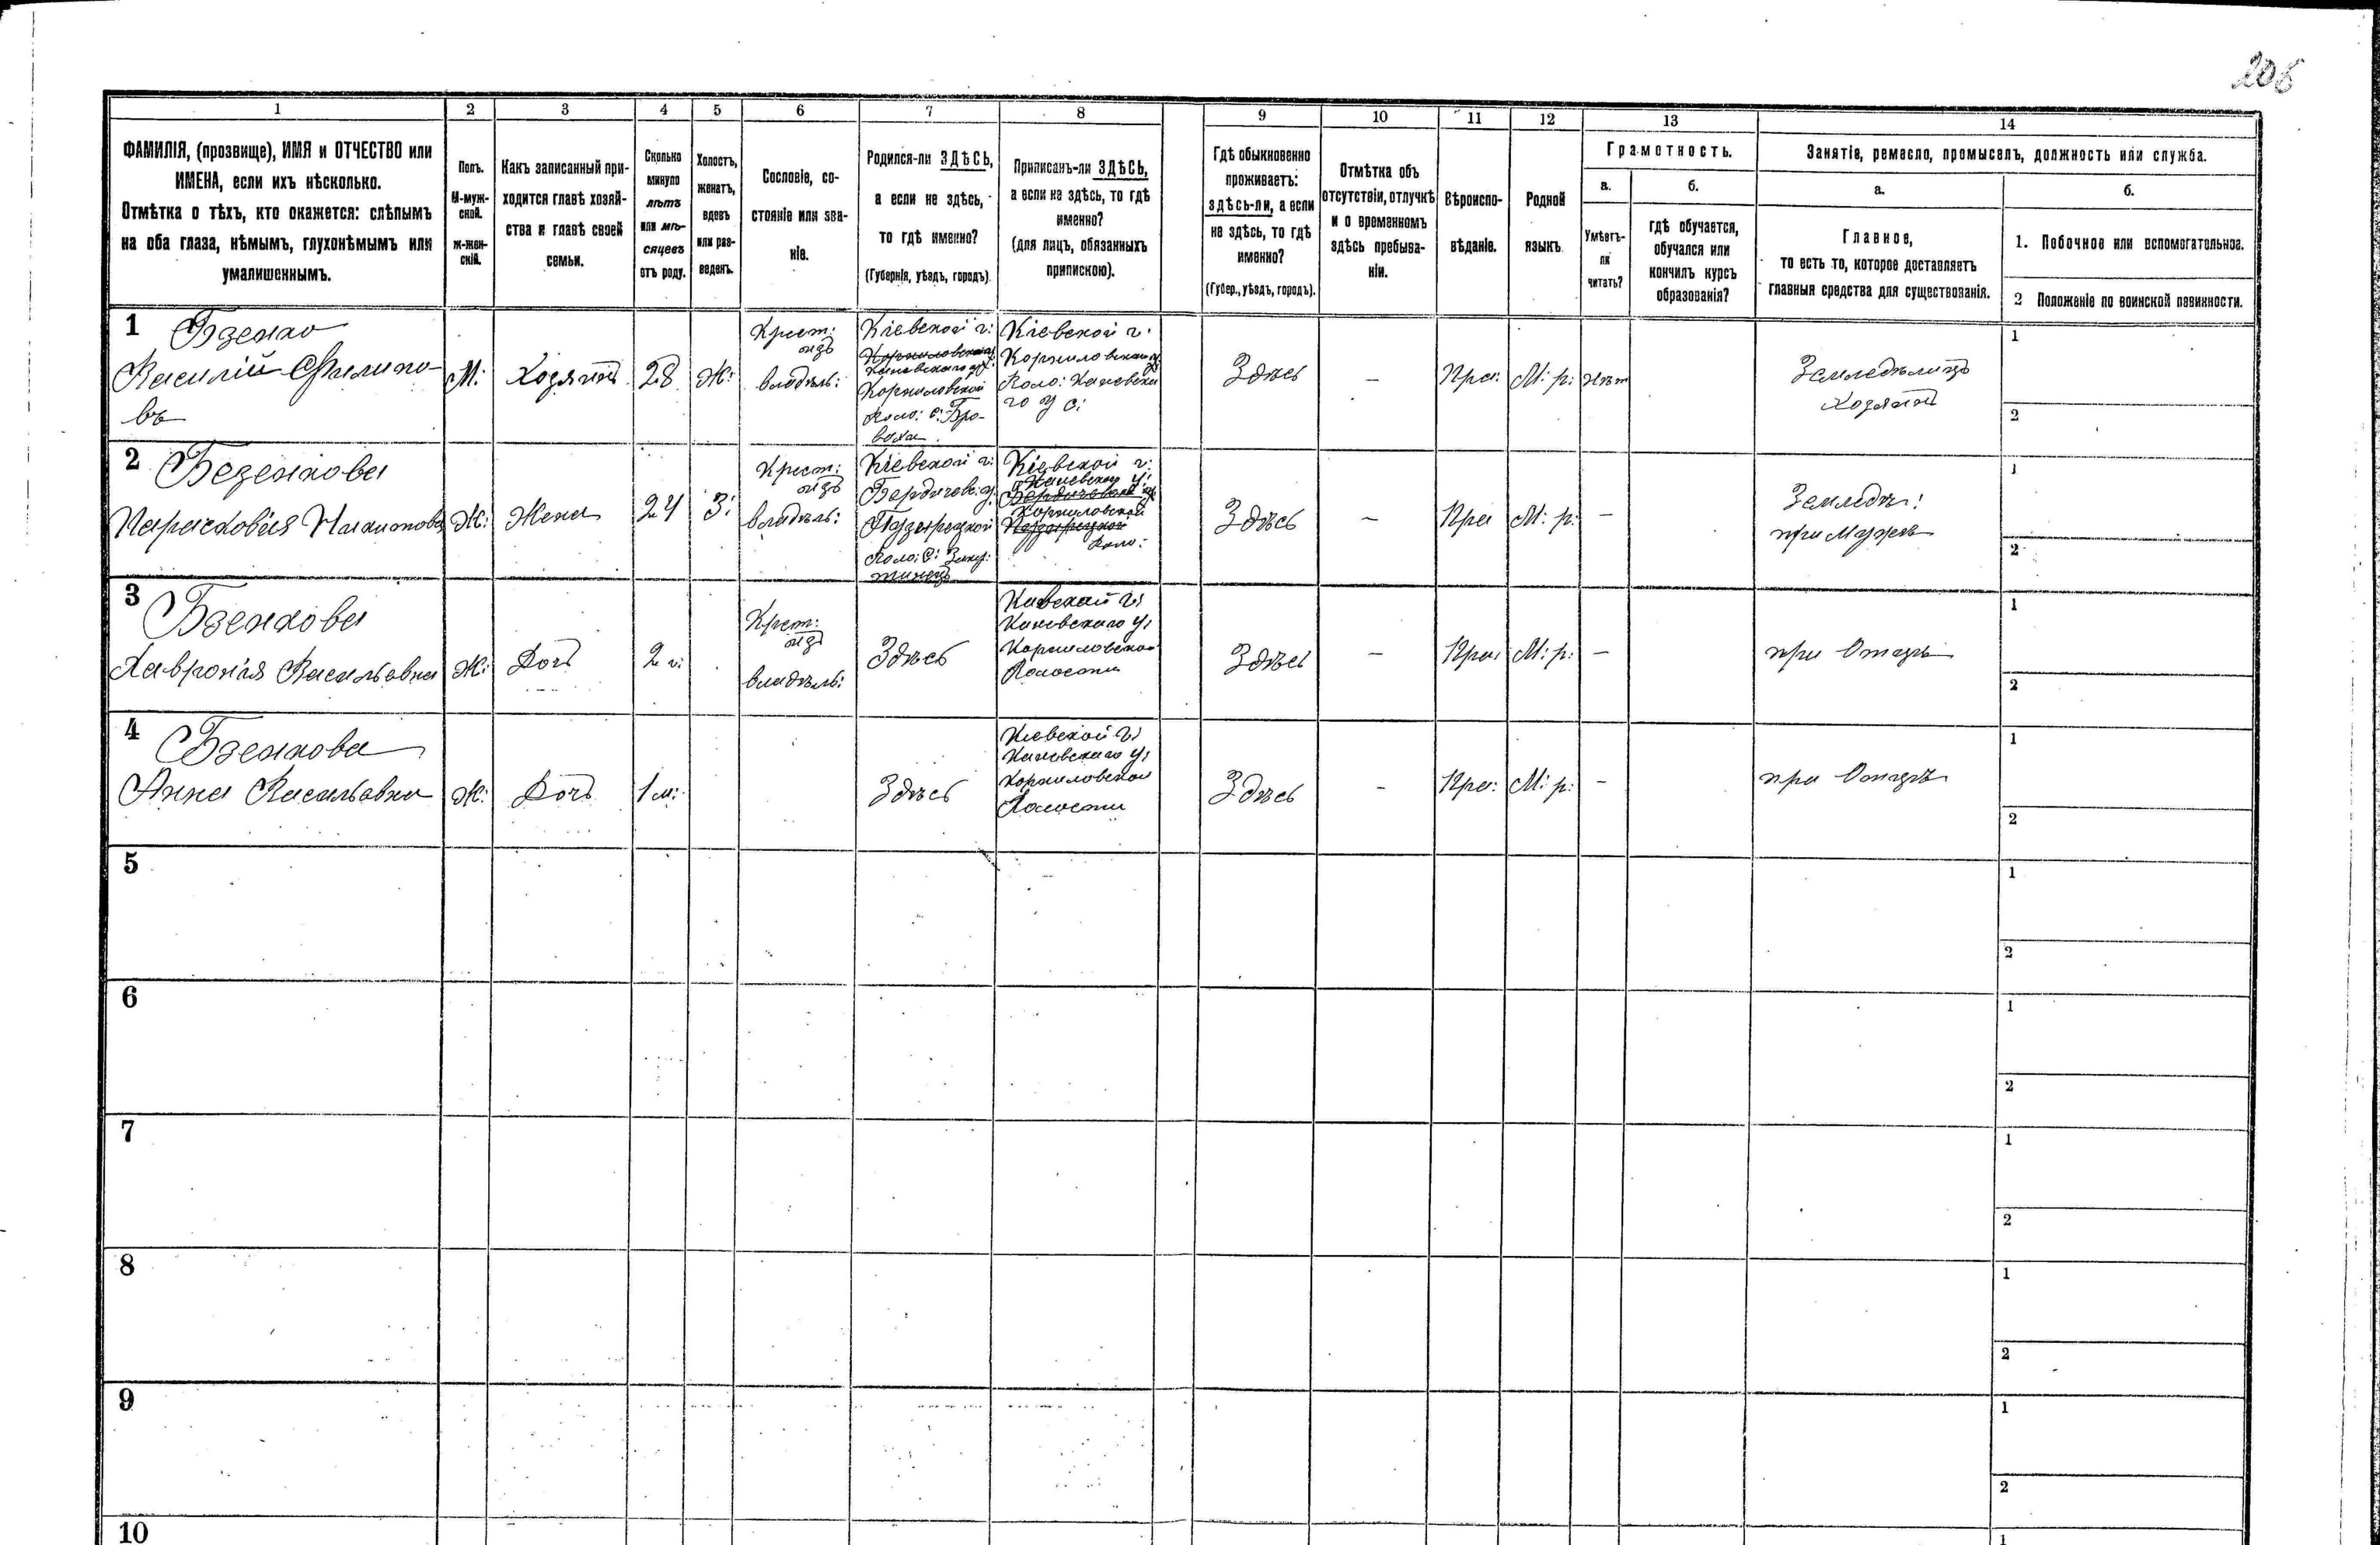 205
1
2
3
4
5
6
7
8
9
10
11
12
13
14
ФАМИЛІЯ, (прозвище), ИМЯ и ОТЧЕСТВО или
ИМЕНА, если ихъ нѣсколько.
Отмѣтка о тѣхъ, кто окажется: слѣпымъ
на оба глаза, нѣмымъ, глухонѣмымъ или
умалишеннымъ.
Полъ.
М-муж-
ской.
ж-жен-
скій.
Какъ записанный при-
ходится главѣ хозяй-
ства и главѣ своей
семьи.
Сколько
минуло
лѣтъ
или мѣ-
сяцевъ
отъ роду.
Холостъ,
женатъ,
вдовъ
или раз-
веденъ.
Сословіе, со-
стояніе или зва-
ніе.
Родился-ли ЗДѢСЬ,
а если не здѣсь,
то гдѣ именно?
(Губернія, уѣздъ, городъ)
Приписанъ-ли ЗДѢСЬ,
а если не здѣсь, то гдѣ
именно?
(для лицъ, обязанныхъ
припискою).
Гдѣ обыкновенно
проживаетъ:
здѣсь-ли, а если
не здѣсь, то гдѣ
именно?
(Губер., уѣздъ, городъ).
Отмѣтка объ
отсутствіи, отлучкѣ
и о временномъ
здѣсь пребыва-
ніи.
Вѣроиспо-
вѣданіе.
Родной
языкъ.
Грамотность.
а.
Умѣетъ-
ли
читать?
б.
гдѣ обучается,
обучался или
кончилъ курсъ
образованія?
Занятіе, ремесло, промыселъ, должность или служба.
а.
Главное,
то есть то, которое доставляетъ
главныя средства для существованія.
б.
1. Побочное или вспомогательное.
2 Положеніе по воинской повинности.
1
Бзенко
Василій Филипо-
въ
М:
Хозяинъ
28
Ж:
Крест:
изъ
владѣль:
Кіевской г:
Корниловской
Каневскаго у:
Корниловской
Воло: с: Бро-
ваха
Кіевской г:
Корниловской
Воло: Каневска
го у с:
Здѣсь
—
Пра:
М: р:
нѣт
Земледѣлецъ
хозяинъ
1
2
2
Безенкова
Парасковія Никитова
Ж:
Жена
24
З:
Крест:
изъ
владѣль:
Кіевской г:
Бердичевс: у.
Пузырецкой
Воло: С:
Кіевской г:
Каневскаго у:
Корниловской
Воло:
Здѣсь
—
Пра
М: р:
—
Земледѣ:
при Мужѣ
1
2
3
Бзенкова
Хавронія Васильевна
Ж:
Дочь
2 г:
Крест:
изъ
владѣль:
Здѣсь
Киевской г:
Каневскаго у:
Корниловской
Волости
Здѣсь
—
Пра:
М: р:
—
при Отцѣ
1
2
4
Бзенкова
Анна Васильевна
Ж:
Дочь
1 м:
Здѣсь
Киевской г:
Каневскаго у:
Корниловской
Волости
Здѣсь
—
Пра:
М: р:
—
при Отцѣ
1
2
5
1
2
6
1
2
7
1
2
8
1
2
9
1
2
10
1